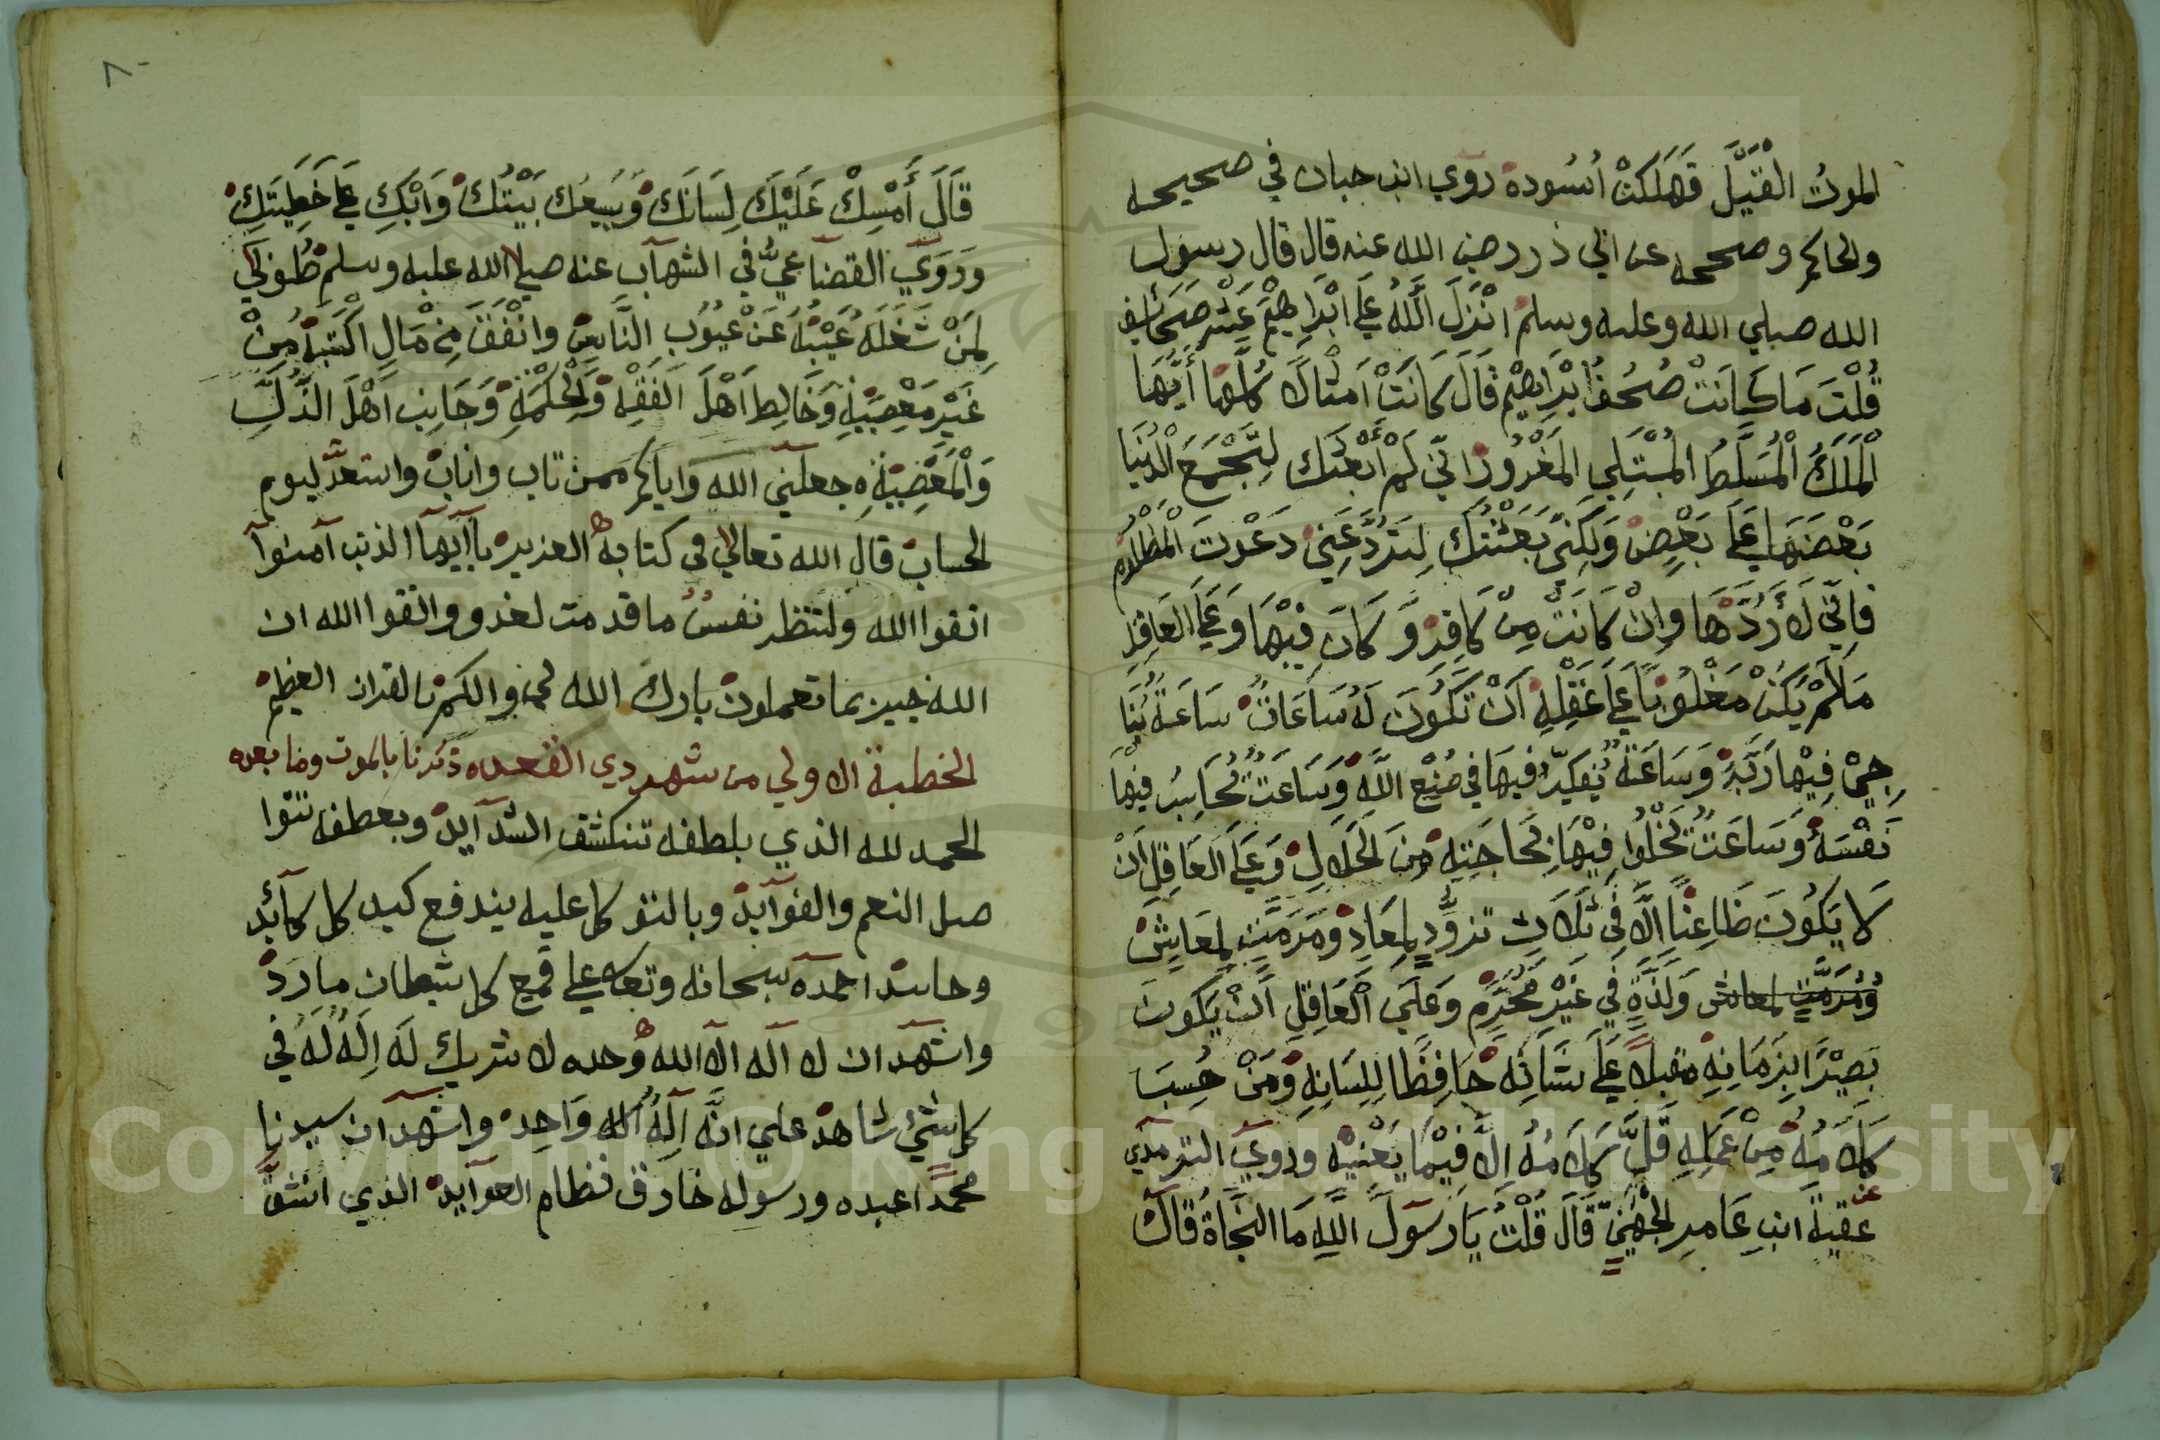 الموتُ الْقَتِيلَ فَهَلَكَتْ اُسُوده روي ابن حبان في صحيحه
والحاكم وصححه عن ابي ذر رضي الله عنه قال قال رسول
الله صلي الله وعليه وسلم انْزَلَ اللَّهُ عَلَى ابْرَاهِيْمَ عَشْرَ صَحَائِفَ
قُلْتُ مَا كَانَتْ صُحُفُ ابْرَاهِيْم قَالَ كَانَتْ اَمثالاً كلها اَيُّهَا
الْمَلِكُ الْمُسَلَّطُ الْمُبْتَلِي الْمَغْرُورُ اِنّي لَمْ أَبْعَثْكَ لِتَجْمَعَ الدُّنْيَا
بَعْضَهَا عَلَى بَعْضٍ وَلَكِنِّي بَعَثْتُكَ لِتَرُدَّ عَنِيْ دَعْوَتَ الْمَظْلُوْم
فَاِنّي لَا أَرُدُّهَا وَاِنْ كَانَتْ مِنْ كَافِرٍ وَكَانَ فِيْهَا وَعَلَى الْعَاقِلِ
مَا لَمْ يَكُنْ مَغْلُوْبًا عَلَى عَقْلِهِ اَنْ تَكُوْنَ لَهُ سَاعَاتٌ سَاعَةً يُنَا
جِيْ فِيْهَا رَبَّهُ وَسَاعَةٌ يُفَكِّرُ فِيْهَا فِي صُنْعِ اللَّهِ وَسَاعَتٌ يُحَاسِبُ فِيْهَا
نَفْسَهُ وَسَاعَتٌ يَخْلُوا فِيْهَا لِحَاجَتِهِ مِنَ الْحَلَالِ وَعَلَى الْعَاقِلِ اَنْ
لَا يَكُوْنَ ظَاعِنًا اِلَّا فِي ثَلَاثِ تَزَوُّدٍ لِمَعَادٍ وَمَرَمَّتٍ لِمَعَاشٍ
وَمَرَمَّتٍ لمعاش وَلَذَّةٍ فِي غَيْرِ مُحَرَّمٍ وَعَلَى الْعَاقِلِ اَنْ يَكُوْنَ
بَصِيْرًا بِزَمَانِهِ مقبلاً عَلَى شَأنِهِ حَافِظًا لِلِسَانِهِ وَمَنْ حَسِبَ
كَلَامَهُ مِنْ عَمَلِهِ قَلَّ كَلَامُهُ اِلَّا فِيْمَا يَعْنِيْهِ وَرُوِيَ الترمذي
عن
عقبة ابن عَامِرِ الْجُهَنِيّ قَالَ قُلْتُ يَا رَسُوْلَ اللَّهِ مَا النَّجَاةُ قَالَ
٨٠
قَالَ أَمْسِكْ عَلَيْكَ لِسَانَكَ وَيَسِعُكَ بَيْتُكَ وَابْكِ عَلَى خَطِيَتِكَ
وَرَوَيَ القضاعيُّ في الشهاب عنه صلي الله عليه وسلم طُوْبَي
لِمَنْ شَغَلَهُ عَيْبُهُ عَنْ عُيُوْبِ النَّاسِ وانْفَقَ مِنْ مَالِ اكْتَسَبَهُ مِنْ
غَيْرِ مَعْصِيَّةٍ وَخَالَطَ اَهْلَ الْفَقْهِ وَالْحِكْمَةِ وَجَانِبَ اَهْلَ الذُّلِّ
وَالْمَعْصِيَّةِ جعلني الله وَاياكم ممن تاب واناب واستعدَّ ليوم
الحساب قال الله تعالي في كتابه العزيز ياآيها الذين آمنوا
اتقوا الله ولتنظر نفسٌ ما قدمت لغدو واتقوا الله ان
الله خبير بما تعملون بارك الله لي والكم بالقران العظيم
الخطبة الاولي من شهر دي القعده ذكرنا بالموت وما بعده
الحمد لله الذي بلطفه تنكشف الشدآيد وبعطفه تتوا
صل النعم والفوآيد وبالتوكل عليه يندفع كيد كل كآئد
وحاسد احمده سبحانه وتعا علي قمع كل شيطان مارد
واشهد ان لا اله الا الله وحده لا شريك لَه اِلَهٌ لَهُ في
كل شيْئٍ شاهدٌ علي انَّه اِلَهُ اله وَاحِد واشهد ان سيدنا
محمدًا عبده ورسوله خارق نظام العوآيد الذي انشقَّ